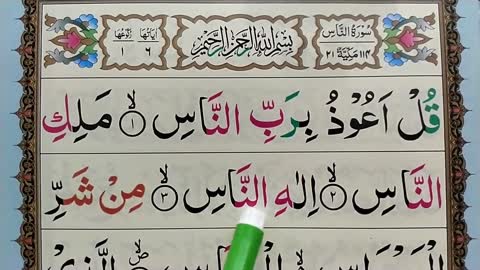 سُوْرَةُ النَّاسِ
١١٤ مَكِّيَّةٌ ٢١
بِسْمِ اللّٰهِ الرَّحْمٰنِ الرَّحِيْمِ
اٰيَاتُهَا ٦
رُكُوْعُهَا ١
قُلْ اَعُوْذُ بِرَبِّ النَّاسِ ۙ﴿١﴾ مَلِكِ
النَّاسِ ۙ﴿٢﴾ اِلٰهِ النَّاسِ ۙ﴿٣﴾ مِنْ شَرِّ